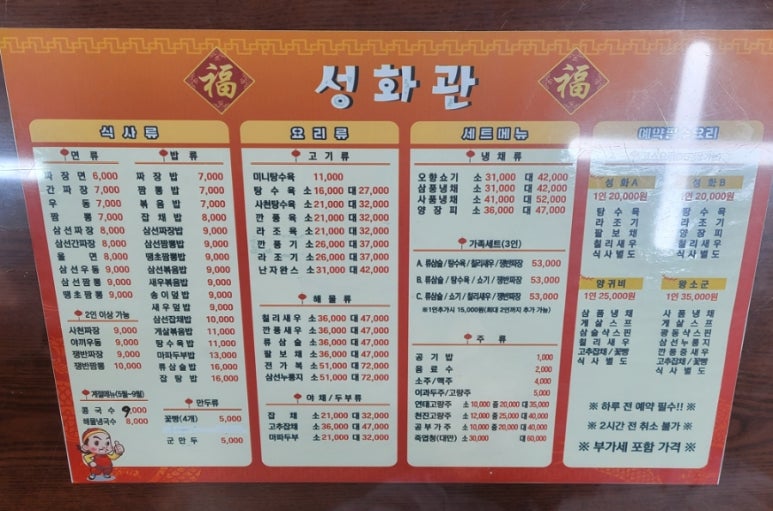 福
성화관
福
식사류
면 류
짜 장 면 6,000
간 짜 장 7,000
우 동 7,000
짬 뽕 7,000
삼선짜장 8,000
삼선간짜장 8,000
울 면 8,000
삼선우동 9,000
삼선짬뽕 9,000
땡초짬뽕 9,000
2인 이상 가능
사천짜장 9,000
야끼우동 9,000
쟁반짜장 9,000
쟁반짬뽕 10,000
계절메뉴(5월~9월)
콩 국 수 9,000
해물냉국수 8,000
밥 류
짜 장 밥 7,000
짬 뽕 밥 7,000
볶 음 밥 7,000
잡 채 밥 8,000
삼선짜장밥 9,000
삼선짬뽕밥 9,000
땡초짬뽕밥 9,000
삼선볶음밥 9,000
새우볶음밥 9,000
송 이 덮 밥 9,000
새 우 덮 밥 9,000
삼선잡채밥 10,000
게살볶음밥 11,000
탕 수 육 밥 11,000
마파두부밥 13,000
류 삼 슬 밥 16,000
잡 탕 밥 16,000
만 두 류
꽃빵(4개) 5,000
군 만 두 5,000
요리류
고 기 류
미니탕수육 11,000
탕 수 육 소16,000 대27,000
사천탕수육 소21,000 대32,000
깐 풍 육 소21,000 대32,000
라 조 육 소21,000 대32,000
깐 풍 기 소26,000 대37,000
라 조 기 소26,000 대37,000
난자완스 소31,000 대42,000
해 물 류
칠리새우 소36,000 대47,000
깐풍새우 소36,000 대47,000
류 삼 슬 소36,000 대47,000
팔 보 채 소36,000 대47,000
전 가 복 소61,000 대72,000
삼선누룽지 소61,000 대72,000
야 채 / 두 부 류
잡 채 소21,000 대32,000
고추잡채 소36,000 대47,000
마파두부 소21,000 대32,000
세트메뉴
냉 채 류
오향쇼기 소31,000 대 42,000
삼품냉채 소31,000 대 42,000
사품냉채 소41,000 대 52,000
양 장 피 소36,000 대 47,000
가족세트(3인)
A. 류삼슬 / 탕수육 / 칠리새우 / 쟁반짜장 53,000
B. 류삼슬 / 탕수육 / 쇼기 / 쟁반짜장 53,000
C. 류삼슬 / 쇼기 / 칠리새우 / 쟁반짜장 53,000
※1인추가시 15,000원(최대 2인까지 추가 가능)
주 류
공 기 밥 1,000
음 료 수 2,000
소주/맥주 4,000
이과두주/고량주 5,000
연태고량주 소 10,000 중 20,000 대 35,000
현진고량주 소 12,000 중 25,000 대 40,000
공 부 가 주 소 10,000 중 20,000 대 40,000
죽엽청(대만) 소 30,000 대 60,000
예약필수요리
성 화 A
1인 20,000원
탕 수 육
라 조 기
팔 보 채
칠리새우
식사별도
성 화 B
1인 20,000원
쇼 기
깐 풍 육
양 장 피
칠리새우
식사별도
양귀비
1인 25,000원
삼품냉채
게살스프
삼슬삭스핀
칠리새우
고추잡채 / 꽃빵
식사별도
왕소군
1인 35,000원
사품냉채
게살스프
광동삭스핀
삼선누룽지
깐풍중새우
고추잡채 / 꽃빵
식사별도
※ 하루 전 예약 필수!! ※
※ 2시간 전 취소 불가 ※
※ 부가세 포함 가격 ※